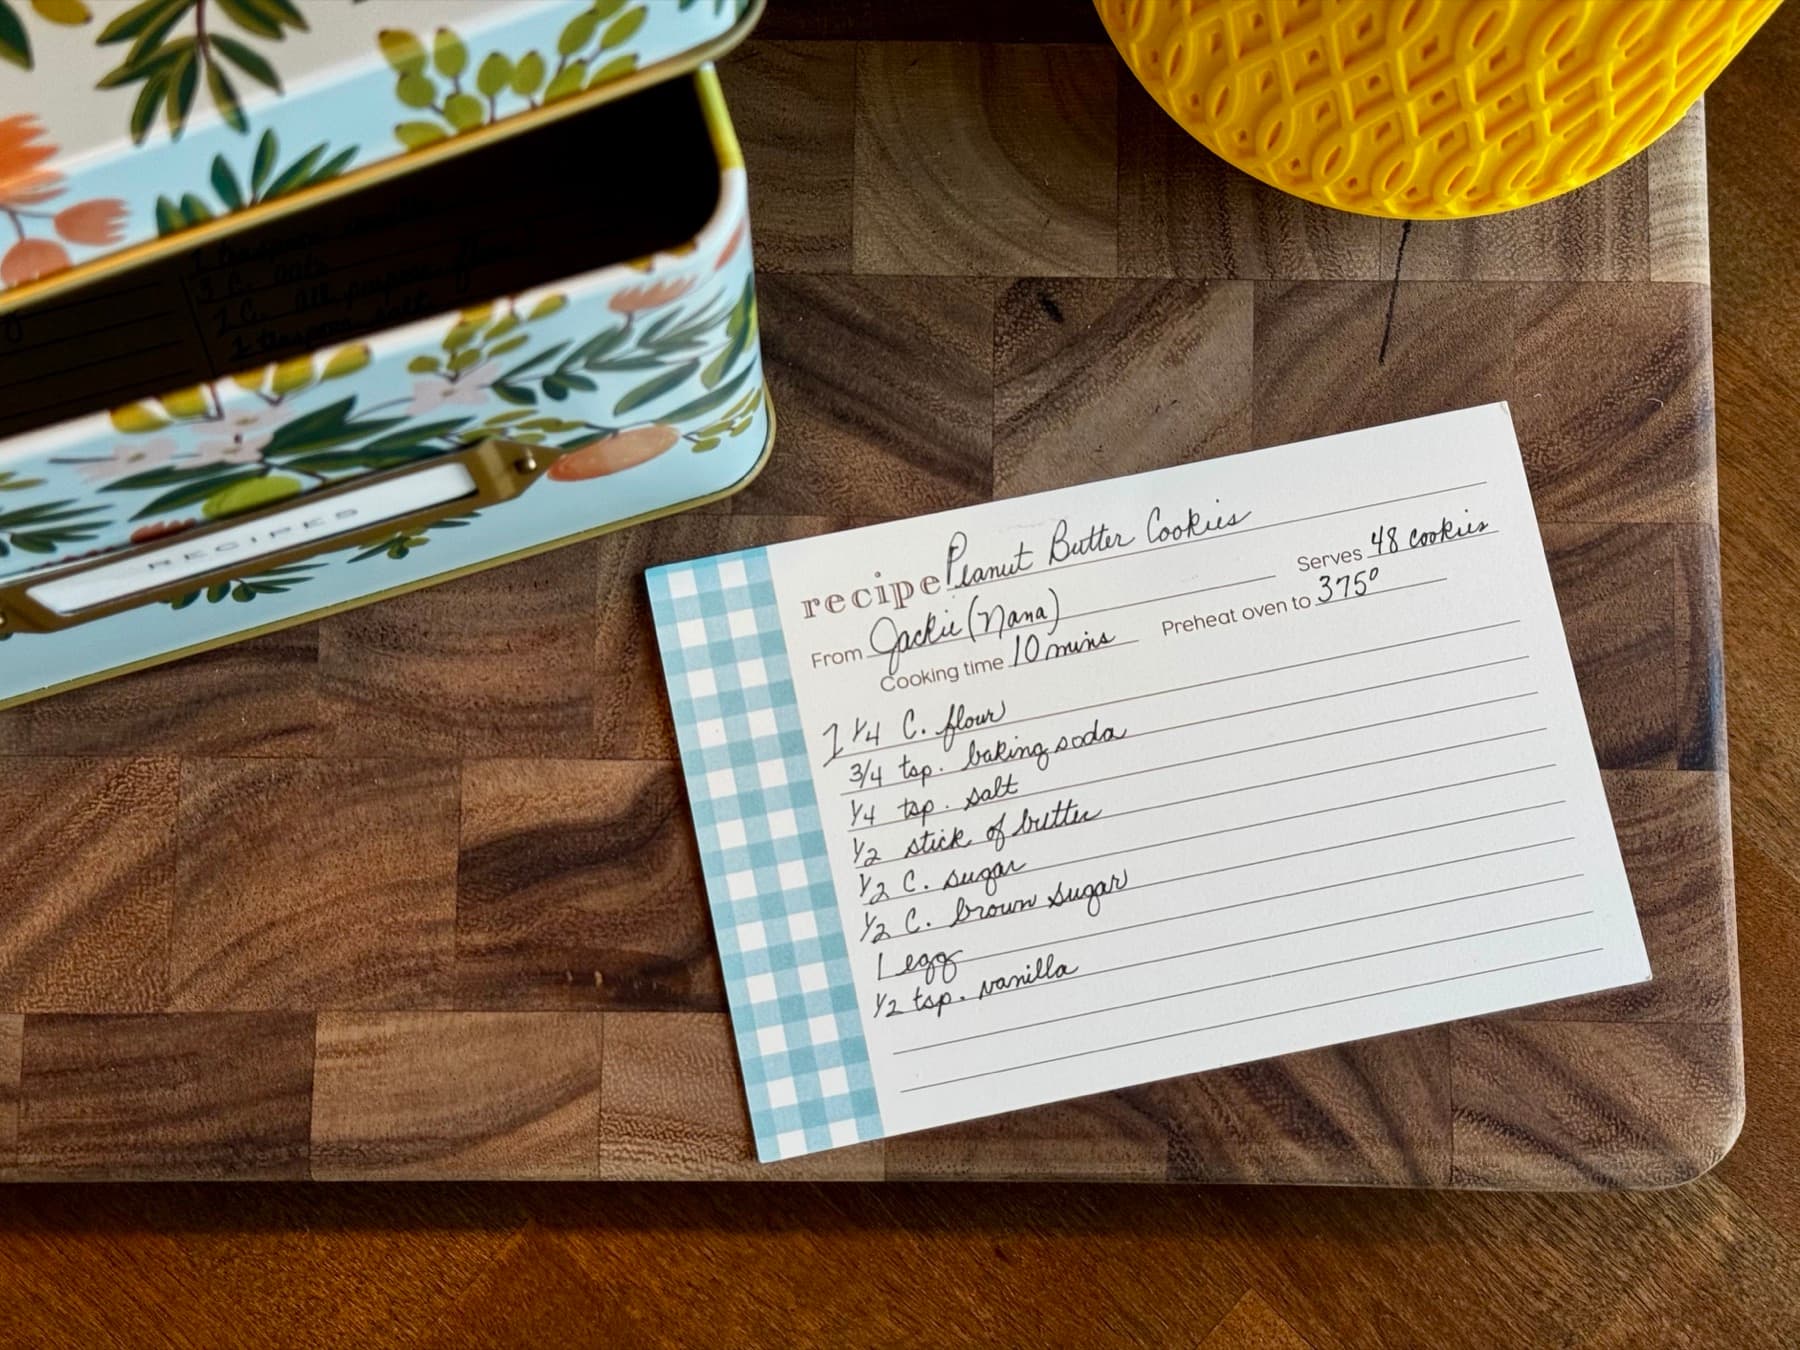 1 teaspoon vanilla
3 C. oats
2 C. all purpose flour
1 teaspoon salt
RECIPES
recipe Peanut Butter Cookies
From Jackie (Nana) Serves 48 cookies
Cooking time 10 mins Preheat oven to 375°
1 1/4 C. flour
3/4 tsp. baking soda
1/4 tsp. salt
1/2 stick of butter
1/2 C. sugar
1/2 C. brown sugar
1 egg
1/2 tsp. vanilla